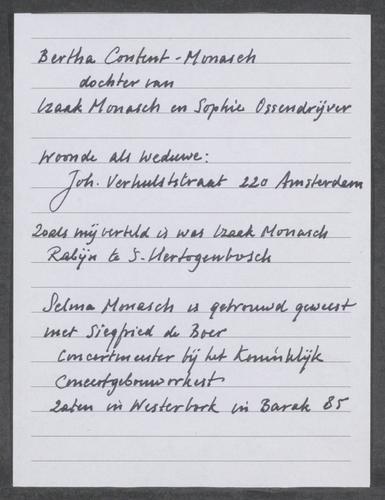 Bertha Content - Monasch
dochter van
Izaak Monasch en Sophie Ossendrijver
Woonde als weduwe:
Joh. Verhulststraat 220 Amsterdam
Zoals mij verteld is was Izaak Monasch
Rabijn te S-Hertogenbosch
Selma Monasch is getrouwd geweest
met Siegfried de Boer
Concertmeester bij het Koninklijk
Concertgebouworkest
Zaten in Westerbork in Barak 85